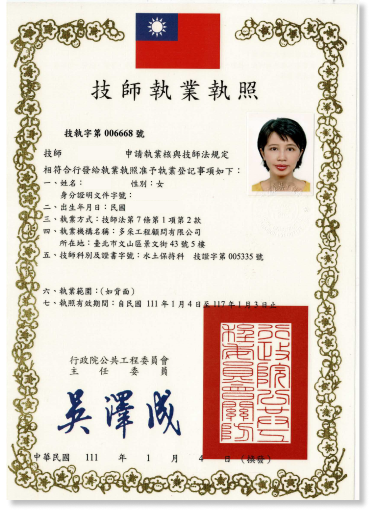 技師執業執照
技執字第 006668 號
技師 申請執業核與技師法規定
相符合行發給執業執照准予執業登記事項如下：
一、姓名： 性別：女
身分證明文件字號：
二、出生年月日：民國
三、執業方式：技師法第7條第1項第2款
四、執業機構名稱：多采工程顧問有限公司
所在地：臺北市文山區景文街43號5樓
五、技師科別及證書字號：水土保持科 技證字第005335號
六、執業範圍：(如背面)
七、執照有效期間：自民國 111年1月4日至117年1月3日止
行政院公共工程委員會
主任委員
吳澤成
行政院公共工程委員會關防
中華民國 111 年 1 月 4 日 (換發)